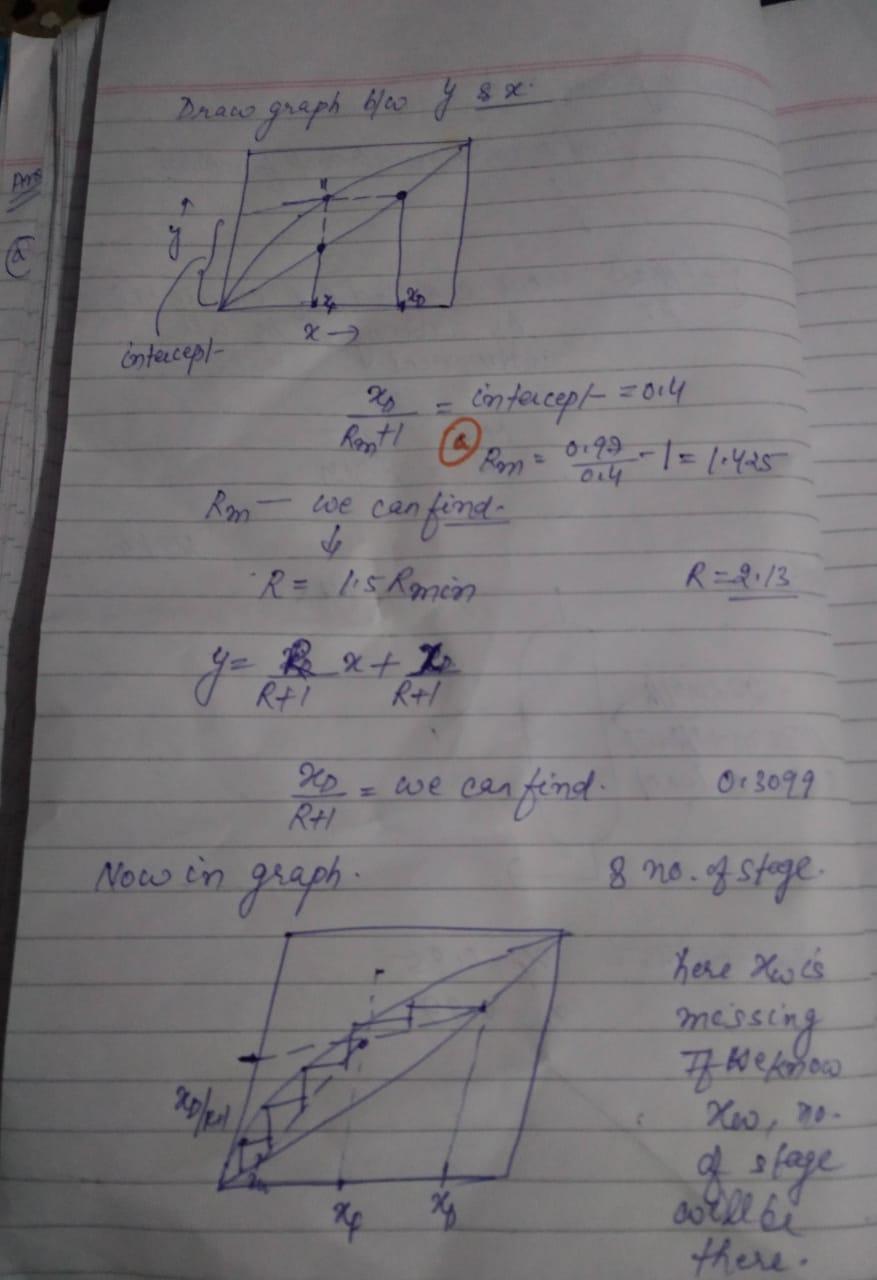 Draw graph b/w y & x.
Ans
a
y ↑
x
xf
xD
x →
intercept
xD / Rm+1 = intercept = 0.4
a Rm = 0.97/0.4 - 1 = 1.425
Rm — we can find.
↓
R = 1.5 Rmin R = 2.13
y = R/R+1 x + xD/R+1
xD/R+1 = we can find. 0.3099
Now in graph. 8 no. of stage.
here xw is
missing
If we know
xw, no.
of stage
will be
there.
xD/R+1
xw
xf
xD